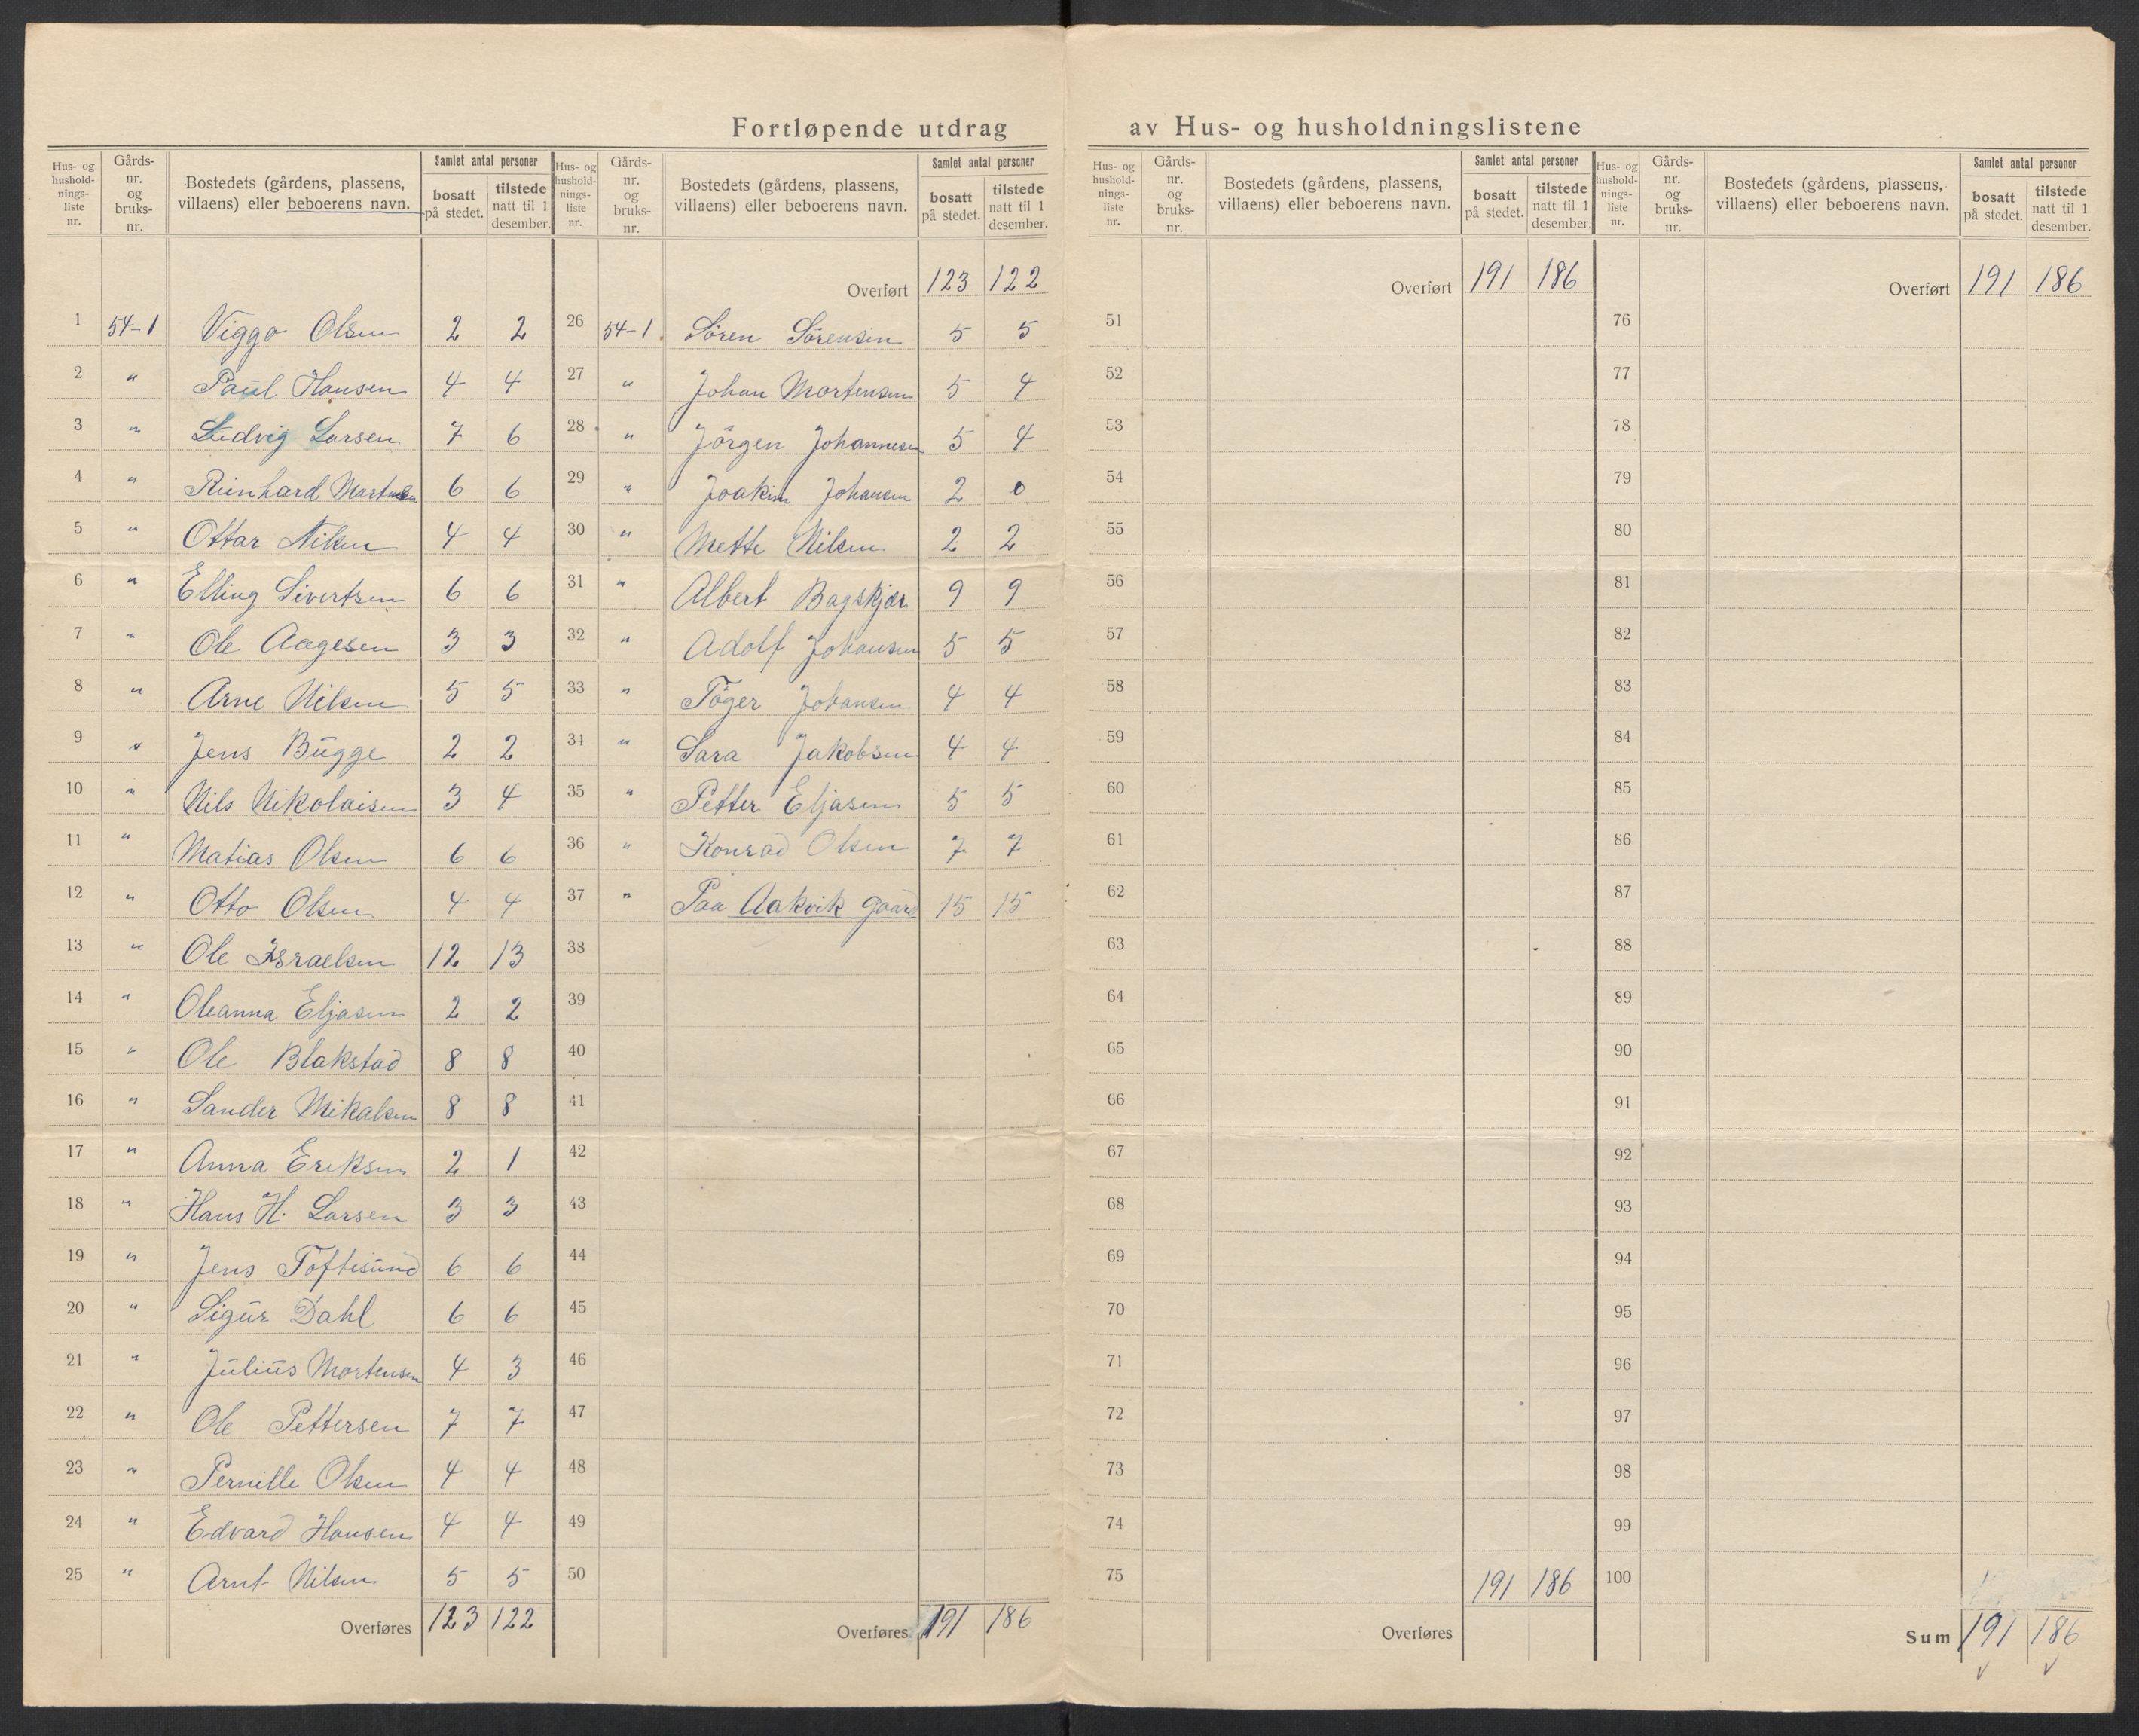 Fortløpende utdrag av Hus- og husholdningslistene
Hus- og husholdnings-liste nr. | Gårds-nr. og bruks-nr. | Bostedets (gårdens, plassens, villaens) eller beboerens navn. | Samlet antal personer | bosatt på stedet. | tilstede natt til 1 desember.
1 54-1 Viggo Olsen 2 2
2 " Paul Hansen 4 4
3 " Ludvig Larsen 7 6
4 " Reinhard Martinsen 6 6
5 " Ottar Nilsen 4 4
6 " Elling Sivertsen 6 6
7 " Ole Aagesen 3 3
8 " Arne Nilsen 5 5
9 " Jens Bügge 2 2
10 " Nils Nikolaisen 3 4
11 " Matias Olsen 6 6
12 " Otto Olsen 4 4
13 " Ole Israelsen 12 13
14 " Oleanna Eljasen 2 2
15 " Ole Blakstad 8 8
16 " Sander Mikalsen 8 8
17 " Anna Eriksen 2 1
18 " Hans H. Larsen 3 3
19 " Jens Toftesund 6 6
20 " Sigur Dahl 6 6
21 " Julius Mortensen 4 3
22 " Ole Pettersen 7 7
23 " Pernille Olsen 4 4
24 " Edvard Hansen 4 4
25 " Arnt Nilsen 5 5
Overføres 123 122
Hus- og husholdnings-liste nr. | Gårds-nr. og bruks-nr. | Bostedets (gårdens, plassens, villaens) eller beboerens navn. | Samlet antal personer | bosatt på stedet. | tilstede natt til 1 desember.
Overført 123 122
26 54-1. Sören Sörensen 5 5
27 " Johan Mortensen 5 4
28 " Jörgen Johannesen 5 4
29 " Joakim Johansen 2 0
30 " Mette Nilsen 2 2
31 " Albert Bagskjær 9 9
32 " Adolf Johansen 5 5
33 " Töger Johansen 4 4
34 " Sara Jakobsen 4 4
35 " Petter Eljasen 5 5
36 " Konrad Olsen 7 7
37 " Paa Aakvik gaard 15 15
38
39
40
41
42
43
44
45
46
47
48
49
50
Overføres 191 186
Hus- og husholdnings-liste nr. | Gårds-nr. og bruks-nr. | Bostedets (gårdens, plassens, villaens) eller beboerens navn. | Samlet antal personer | bosatt på stedet. | tilstede natt til 1 desember.
Overført 191 186
51
52
53
54
55
56
57
58
59
60
61
62
63
64
65
66
67
68
69
70
71
72
73
74
75 191 186
Overføres
Hus- og husholdnings-liste nr. | Gårds-nr. og bruks-nr. | Bostedets (gårdens, plassens, villaens) eller beboerens navn. | Samlet antal personer | bosatt på stedet. | tilstede natt til 1 desember.
Overført 191 186
76
77
78
79
80
81
82
83
84
85
86
87
88
89
90
91
92
93
94
95
96
97
98
99
100
Sum 191 186